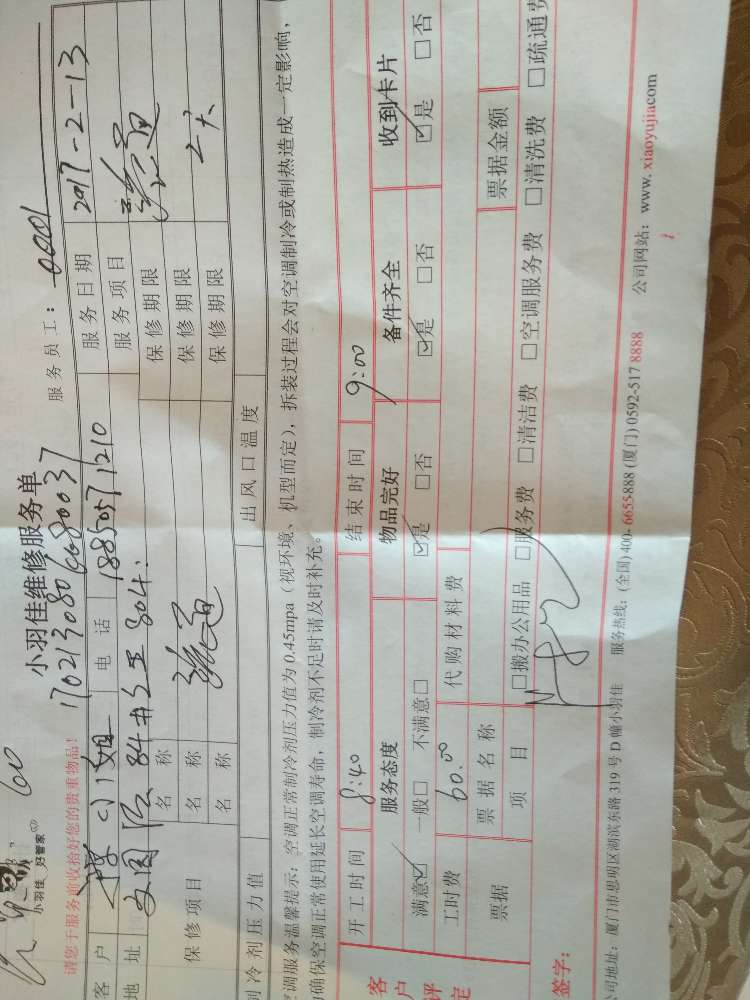 60
小羽佳 好管家
小羽佳维修服务单
服务员工:
1702130806680037
请您于服务前收拾好您的贵重物品!
客户 小姐 电话 18850571210 服务日期 2017-2-13
地址 84 804. 服务项目 疏通
保修项目
名称 保修期限
名称 疏通 保修期限
名称 保修期限 天
制冷剂压力值 出风口温度
空调服务温馨提示:空调正常制冷剂压力值为0.45mpa(视环境、机型而定),拆装过程会对空调制冷或制热造成一定影响,
确保空调正常使用延长空调寿命,制冷剂不足时请及时补充。
开工时间 8:40 结束时间 9:00
客户评定
服务态度 物品完好 备件齐全 收到卡片
满意☑ 一般□ 不满意□ ☑是 □否 ☑是 □否 ☑是 □否
工时费 60.00 代购材料费
票据 票据名称 票据金额
项目 □搬办公用品 □服务费 □清洁费 □空调服务费 □清洗费 □疏通费
签字:
公司地址:厦门市思明区湖滨东路319号D幢小羽佳 服务热线:(全国)400-6655-888(厦门)0592-517 8888 公司网站:www.xiaoyujia.com